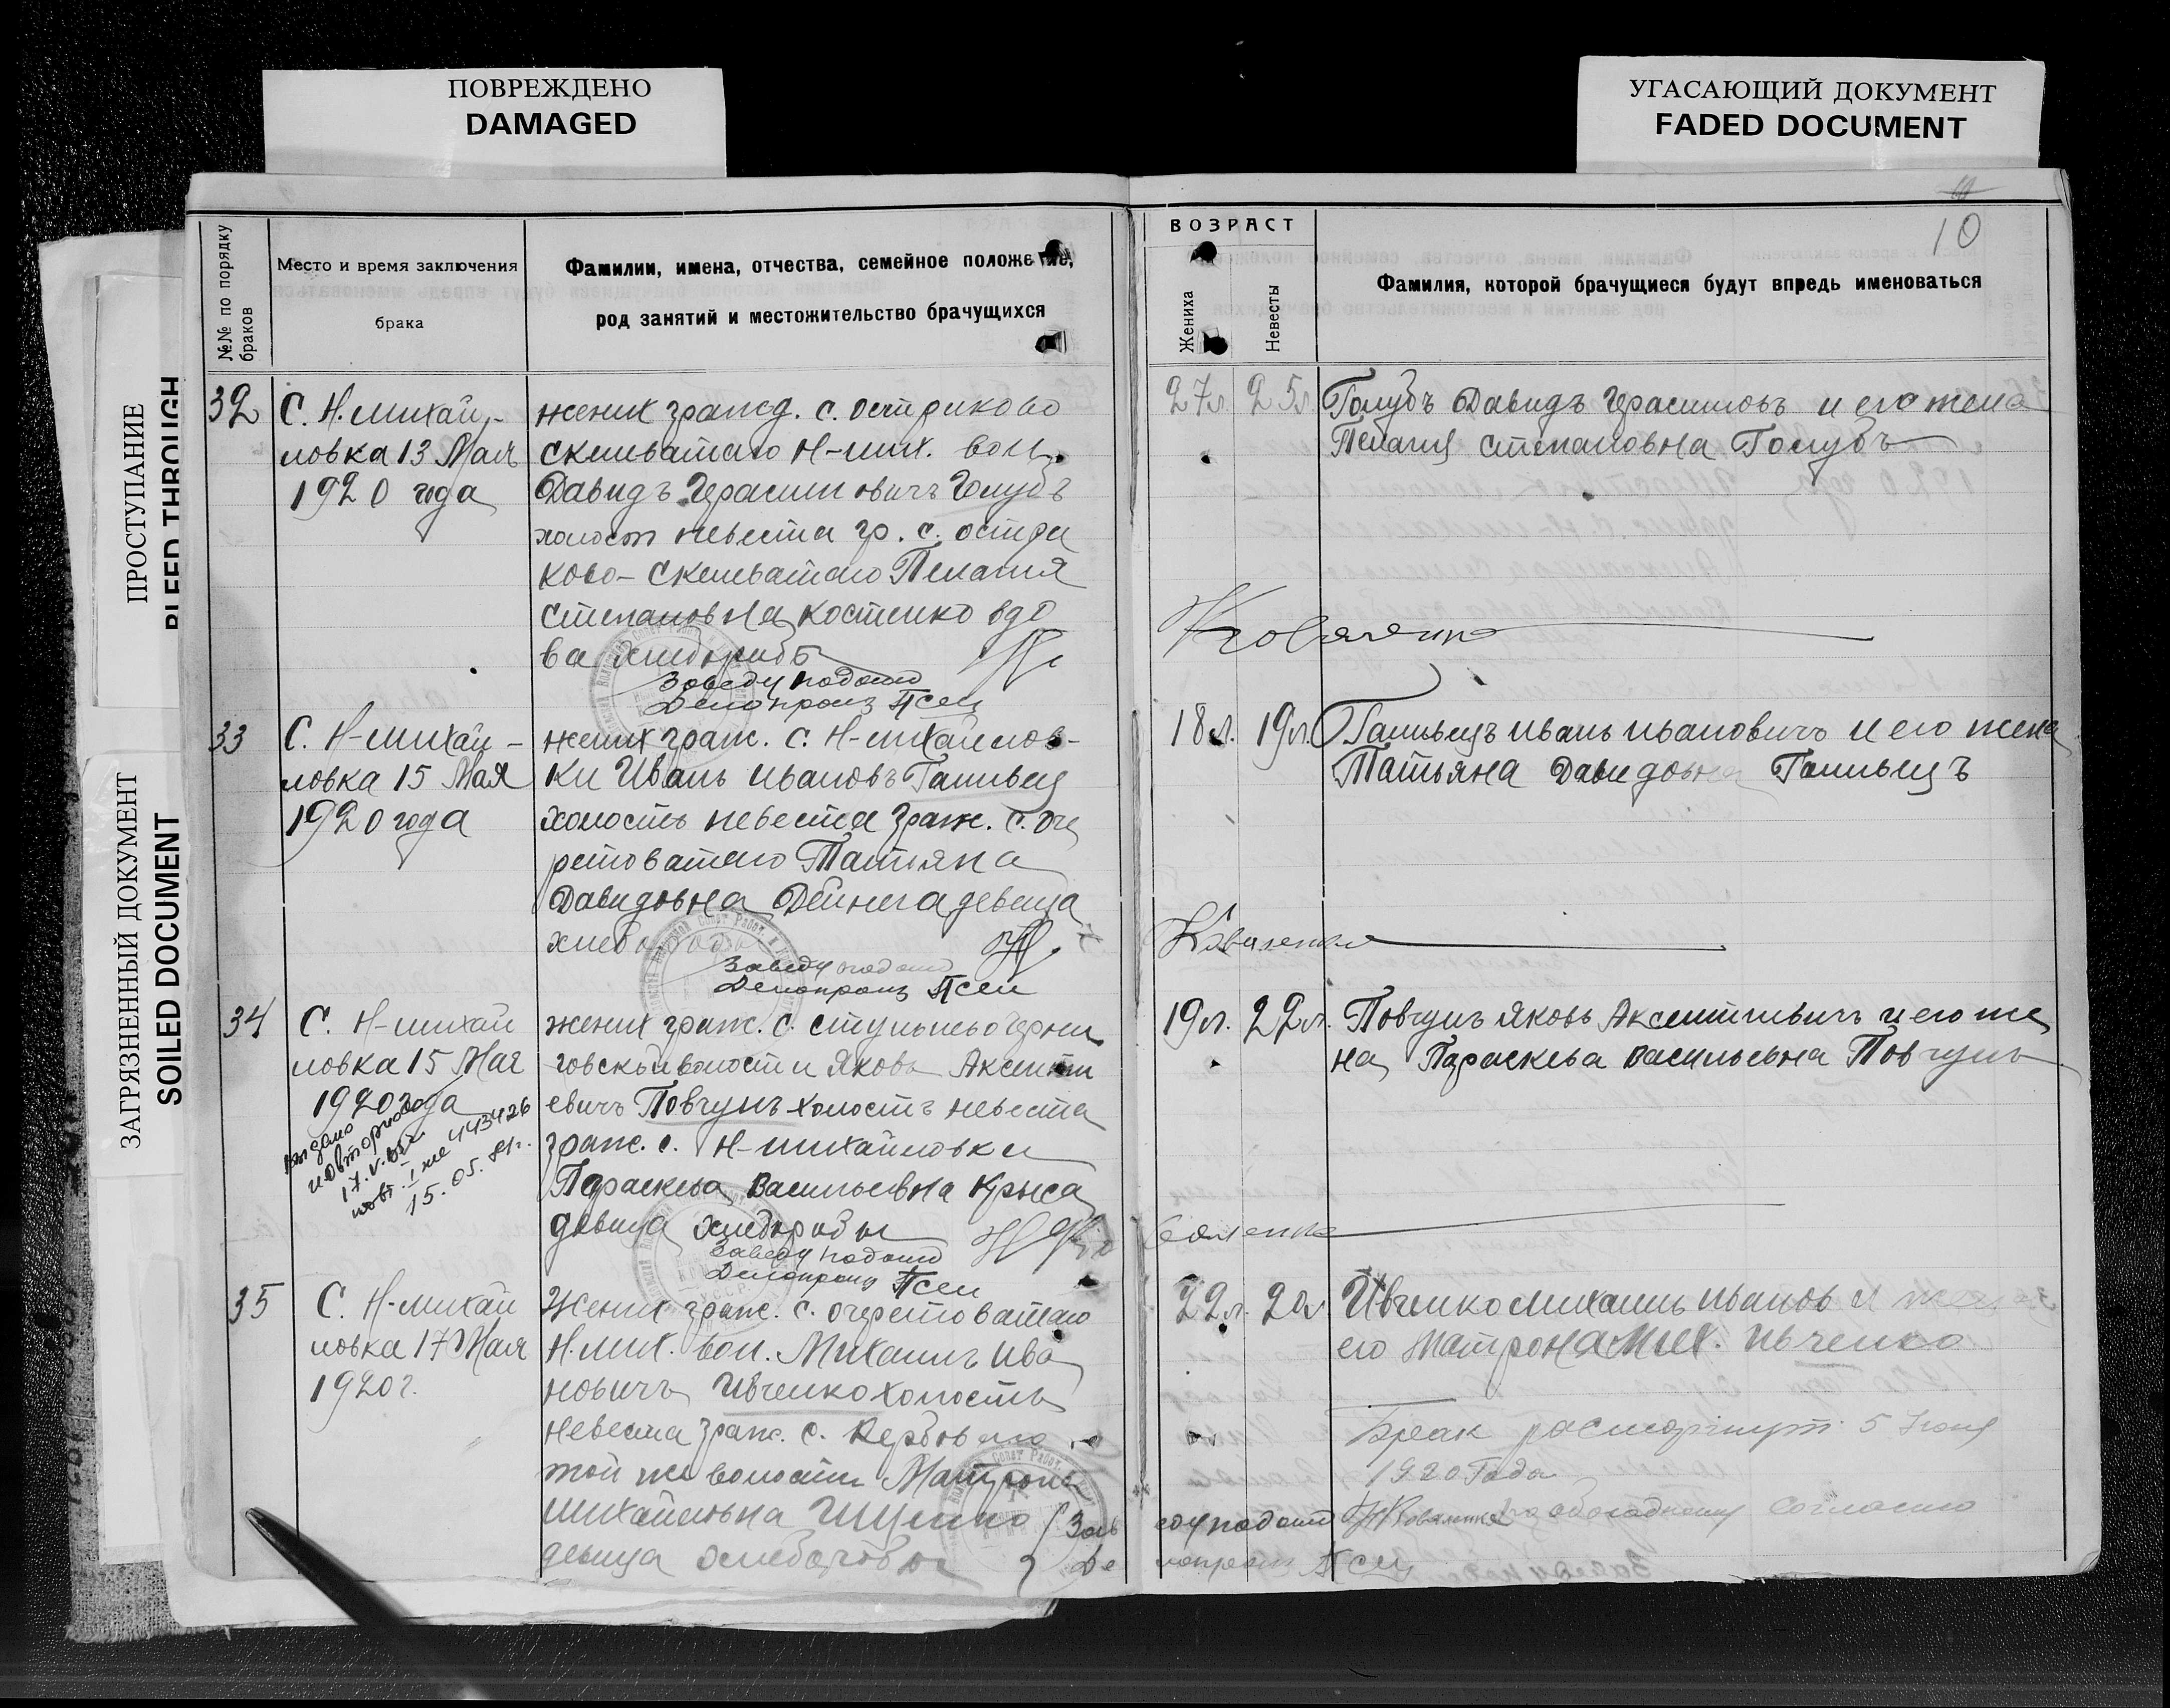 ПОВРЕЖДЕНО
DAMAGED
УГАСАЮЩИЙ ДОКУМЕНТ
FADED DOCUMENT
ПРОСТУПАНИЕ
BLEED THROUGH
ЗАГРЯЗНЕННЫЙ ДОКУМЕНТ
SOILED DOCUMENT
10
№№ по порядку браков
Место и время заключения
брака
Фамилии, имена, отчества, семейное положение,
род занятий и местожительство брачущихся
ВОЗРАСТ
Жениха
Невесты
Фамилия, которой брачущиеся будут впредь именоваться
32
С. Н. михай-
ловка 13 Мая
1920 года
жених гражд. с. остриково
скелеватаго Н-мих. вол.
Давидъ Герасимовичъ Голубъ
холост невеста гр. с. остри
ково-скелеватаго Пелагия
степановна костенко вдо
ва хлеборобъ
Заведу подотд
Делопроиз Псел
27л. 25л.
Голубъ Давидъ Герасимовъ и его жена
Пелагия степановна Голубъ
Коваленко
33
С. Н-михай-
ловка 15 Мая
1920 года
жених граж. с. Н-михайлов-
ки Иванъ ивановъ
холостъ невеста граж. с. оче
ретоватаго Татияна
Давидовна Дейнега девица
хлебороды
Заведу подотд
Делопроиз Псел
18л. 19л.
иванъ ивановичъ и его жена
Татьяна Давидовна
Коваленко
34
С. Н-михай
ловка 15 Мая
1920 года
выдано
повторное
15.05.81г.
жених граж. с. черни
говской волости Яковъ Аксенти
евичъ Повчунъ холостъ невеста
граж. с. Н-михайловки
Параскева Васильевна Крыса
девица хлеборобы
Заведу подотд
Делопроиз Псел
19л. 22л.
Повчунъ Яковъ Аксентиевичъ и его же
на Параскева Васильевна Повчунъ
Коваленко
35
С. Н-михай
ловка 17 Мая
1920 г.
Жених граж. с. очеретоватаго
Н. мих. вол. Михаилъ Ива
новичъ Ивченко холостъ
невеста граж. с. Вербоваго
той же волости Матрона
михайловна
девица хлеборобы
Заведу подотд
Делопроиз Псел
22л. 20л
Ивченко михаилъ иванов и жена
его Матрона Мих. Ивченко
Брак расторгнут 5 Июня
1920 Года
Коваленко по обоюдному согласию